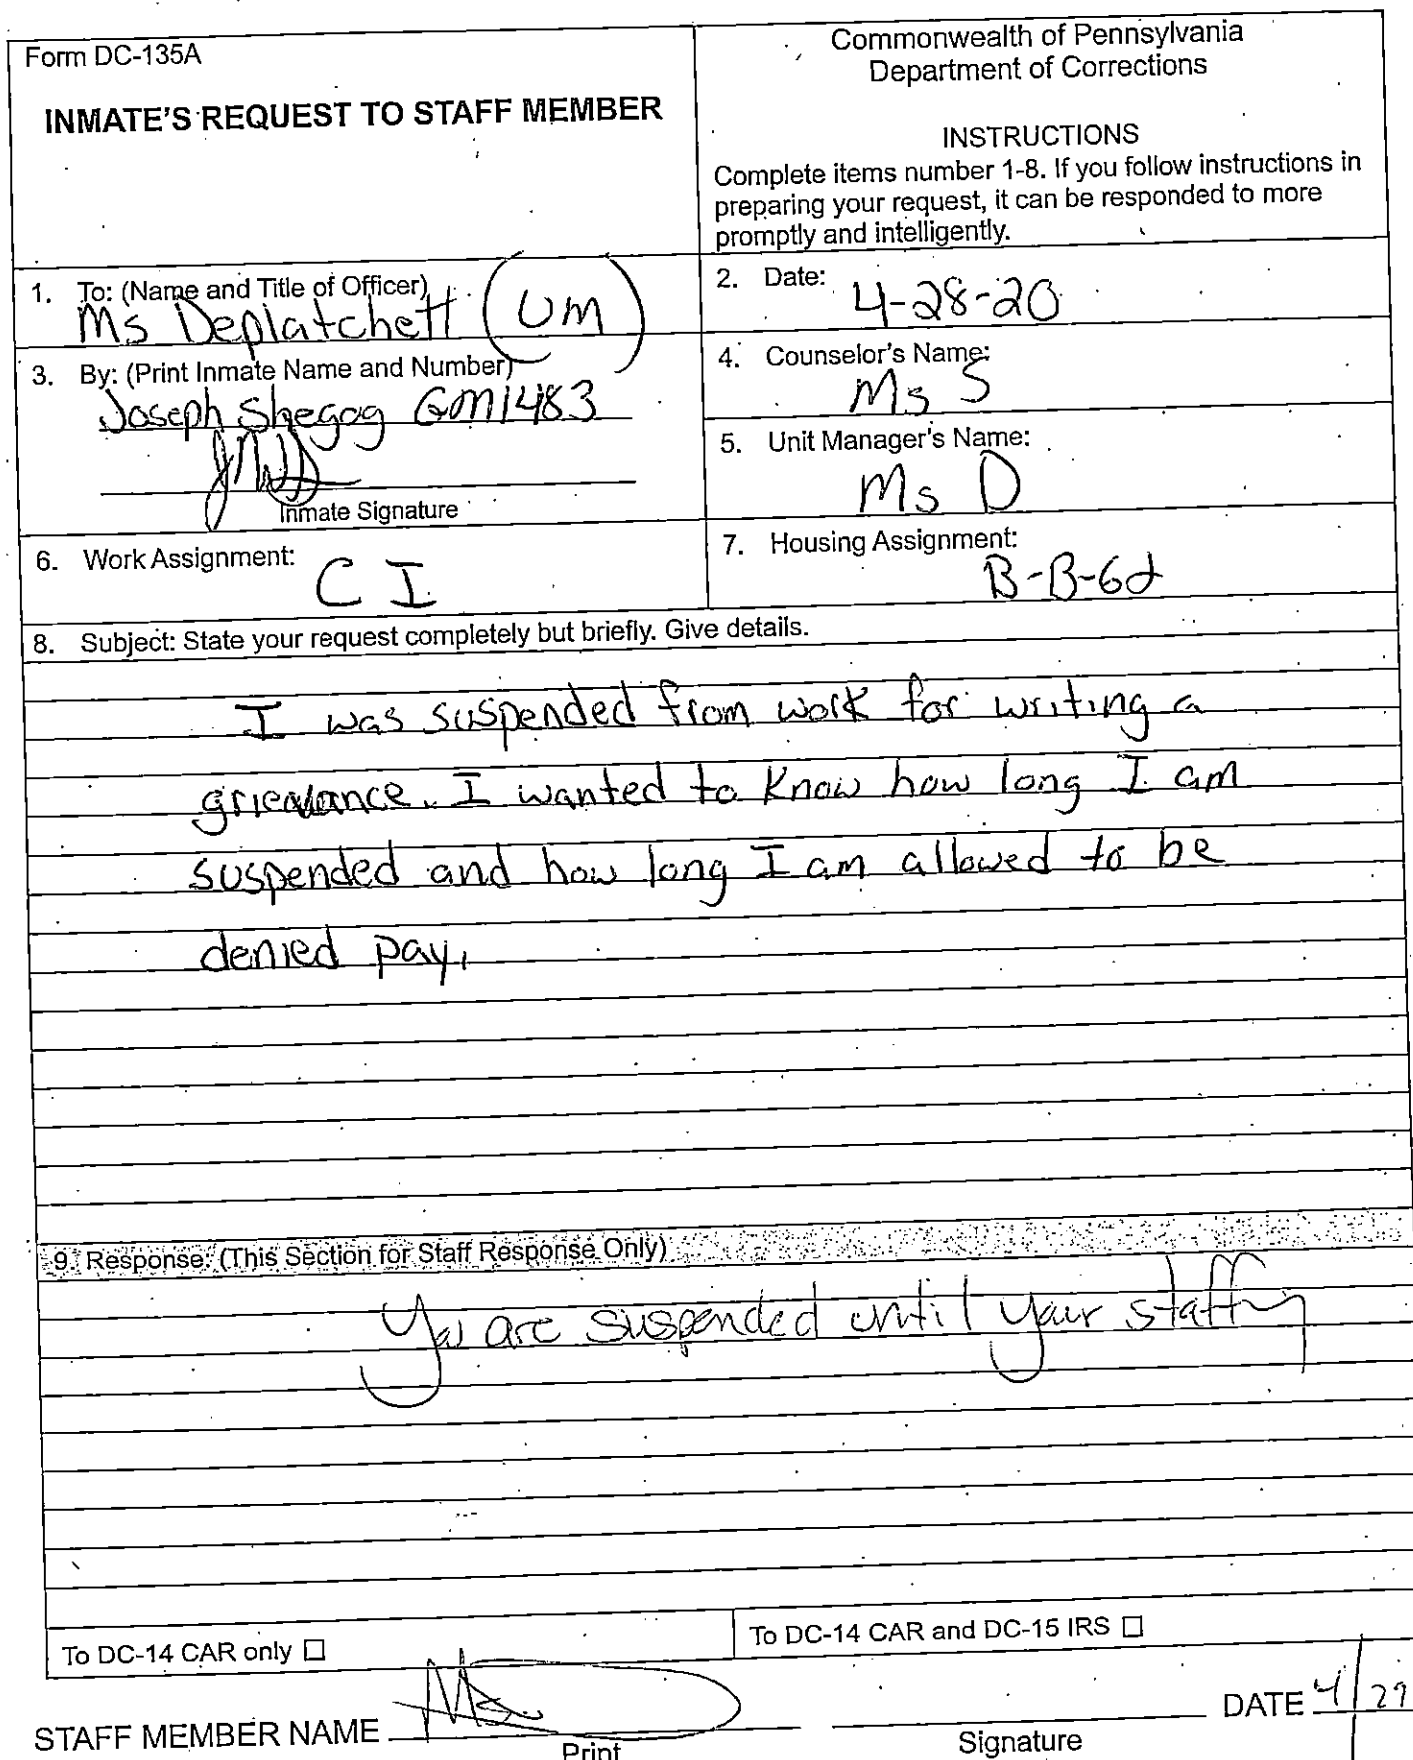 Form DC-135A
INMATE'S REQUEST TO STAFF MEMBER
Commonwealth of Pennsylvania
Department of Corrections
INSTRUCTIONS
Complete items number 1-8. If you follow instructions in
preparing your request, it can be responded to more
promptly and intelligently.
1. To: (Name and Title of Officer)
Ms Deplatchett (UM)
2. Date:
4-28-20
3. By: (Print Inmate Name and Number)
Joseph Shegog GM1483
Inmate Signature
4. Counselor's Name:
Ms S
5. Unit Manager's Name:
Ms D
6. Work Assignment:
C I
7. Housing Assignment:
B-B-62
8. Subject: State your request completely but briefly. Give details.
I was suspended from work for writing a
grievance. I wanted to know how long I am
suspended and how long I am allowed to be
denied pay.
9. Response: (This Section for Staff Response Only)
You are suspended until your staffing
To DC-14 CAR only ☐
To DC-14 CAR and DC-15 IRS ☐
STAFF MEMBER NAME Ms. D
DATE 4/29
Print
Signature